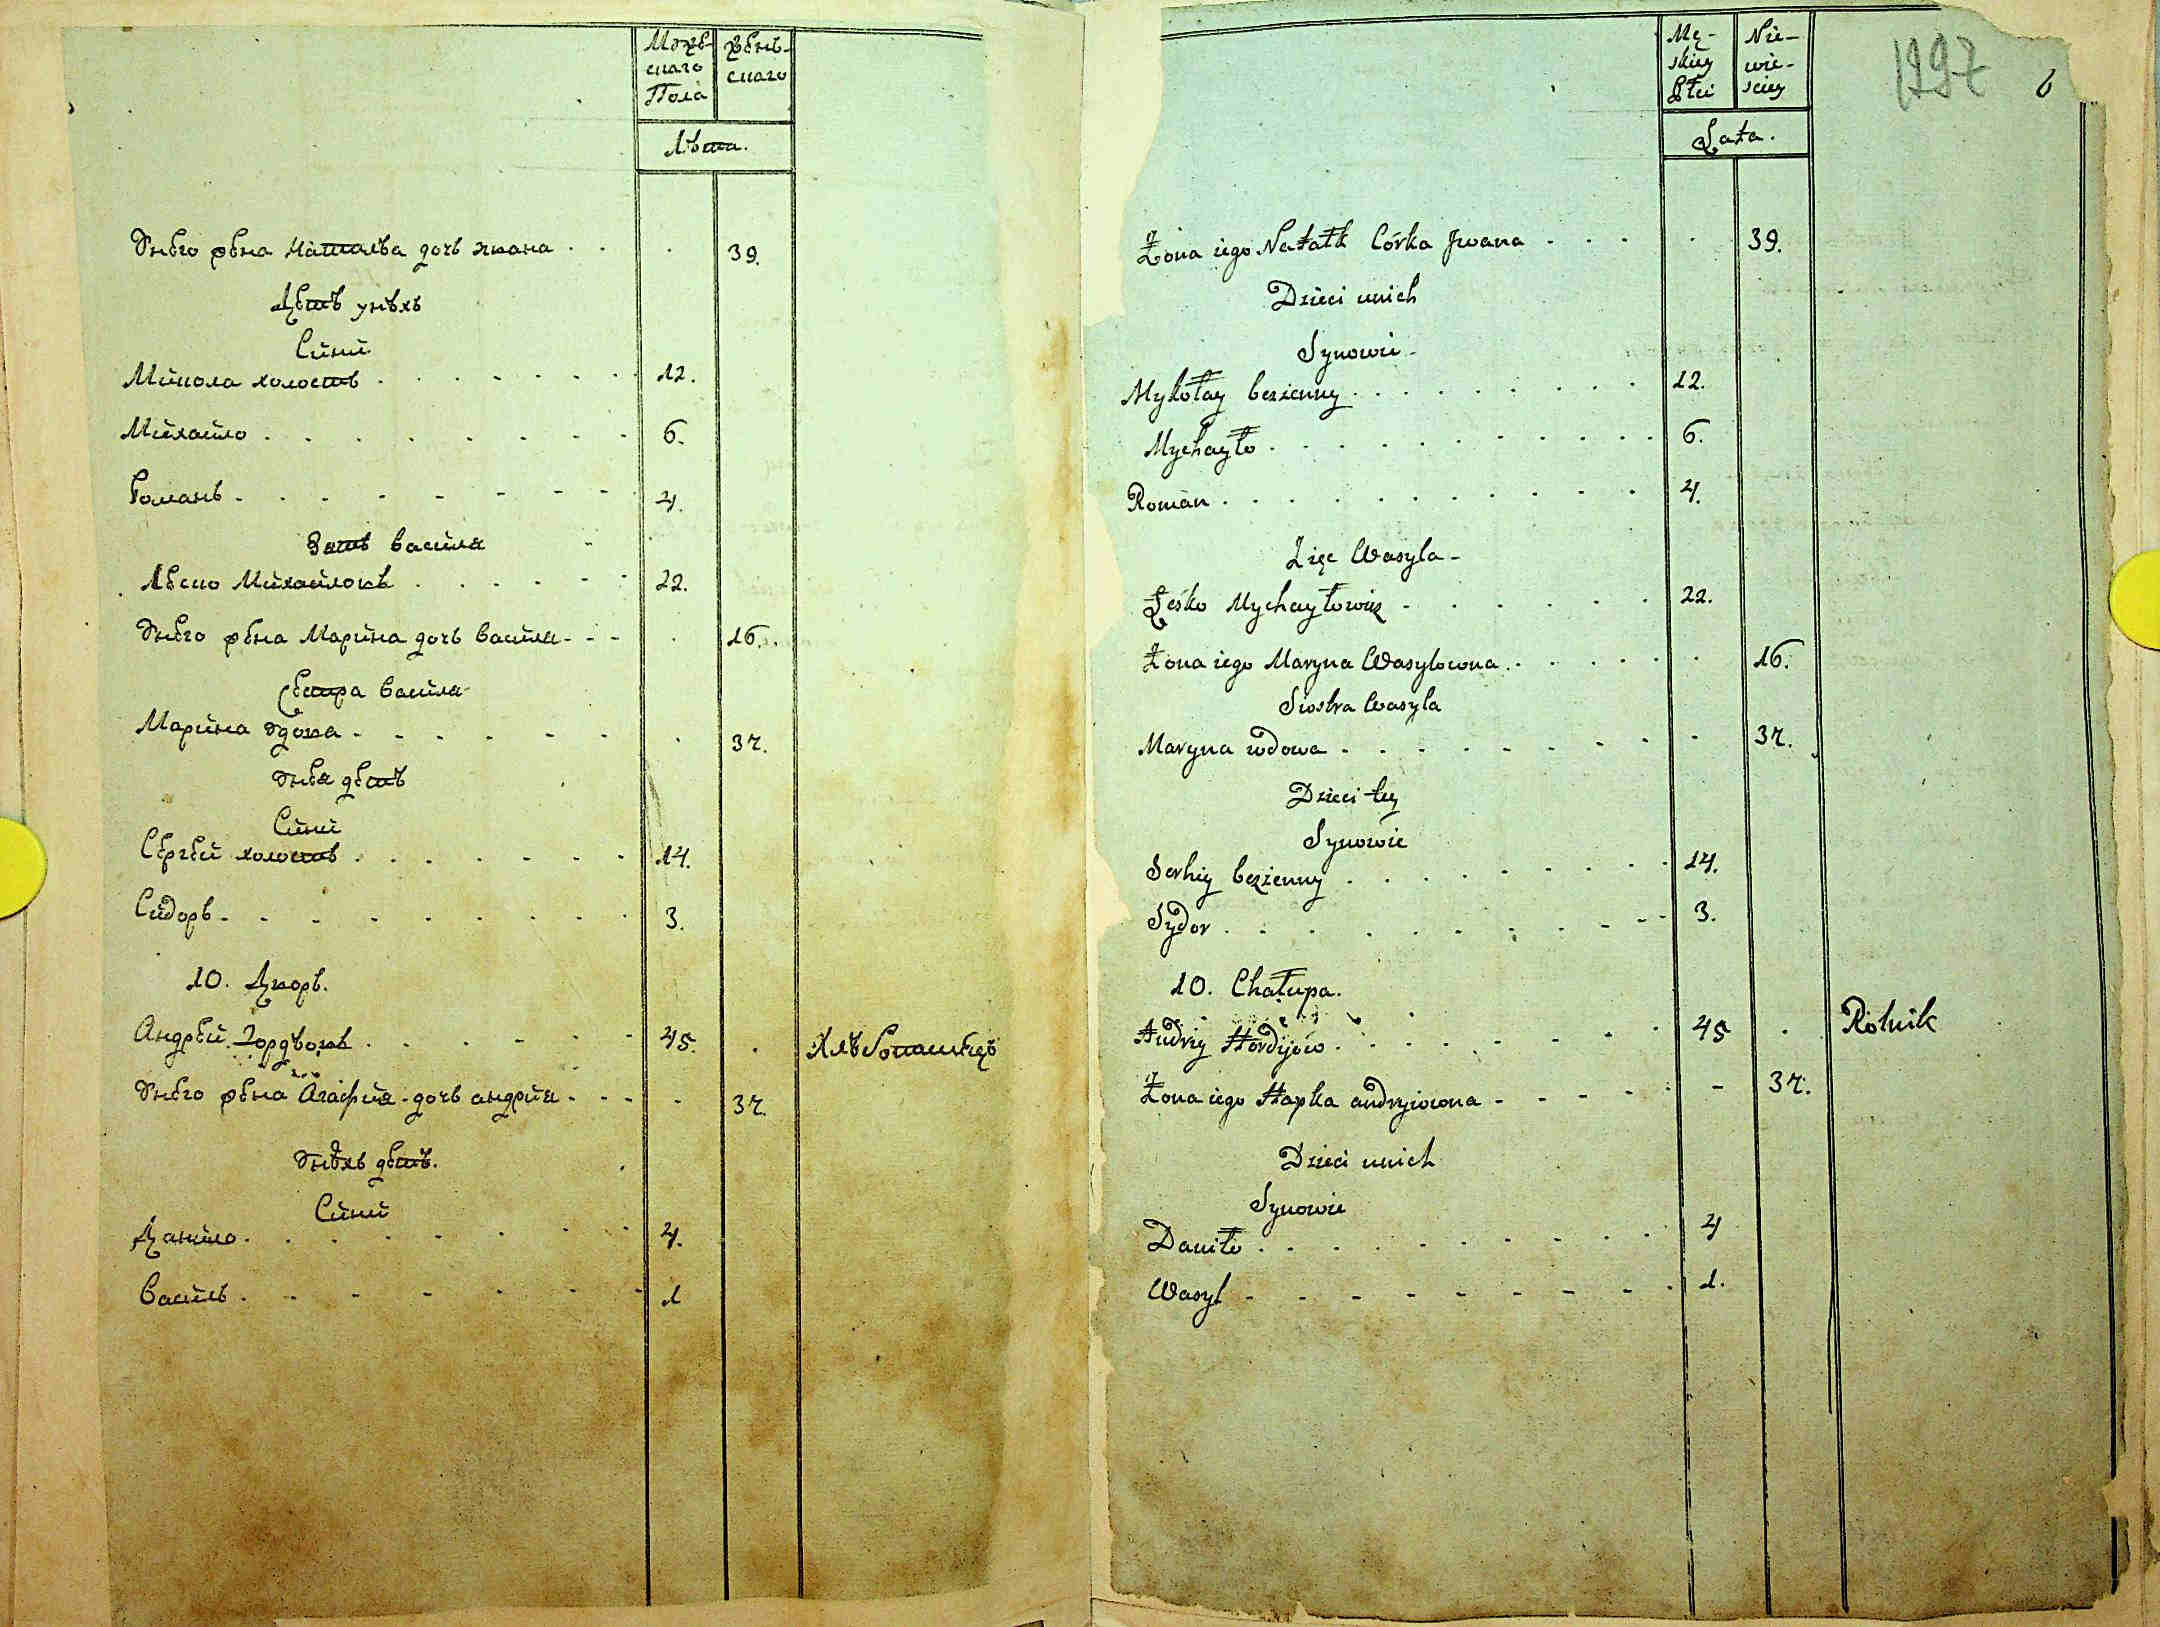 Мужескаго Пола
Женьскаго
Лѣта.
Унего жена Наталѣа дочь ивана . . . 39.
Дѣтѣ унѣхъ
Сини
Микола холостъ . . . . . . . 12.
Михайло . . . . . . . . 6.
Романъ - . . - - - - - 4.
Зять василя
Леско Михайловъ . . . . . . 22.
Унего жена Марина дочь василя - - - . 16.
Сестра василя
Марина вдова - - - - - - . 37.
Унея детѣ
Сини
Сергей холостъ . . . . . . 14.
Сидоръ - - - - - - - - 3.
10. Дворъ.
Андрей Гордѣовъ . . . . . 45. . Хлѣбопашецъ
Унего жена Агафия дочь андрия - - - - 37.
Унѣхъ детѣ.
Сини
Данило . . . . . . . 4.
Василь . - - - - - - 1
Mę-
skiey
Płci
Nie-
wie-
sciey
Lata.
1297
6
Żona iego Natalk Córka Jwana . . . . . 39.
Dzieci unich
Synowie
Mykołay bezienny . . . . . . . . 12.
Mychayło . . . . . . . . . . 6.
Roman . . . . . . . . . . 4.
Zięc Wasyla -
Leśko Mychayłowicz . . . . . . 22.
Żona iego Maryna Wasylowna . . . . . 16.
Siostra Wasyla
Maryna wdowa . - - - - - - - 37.
Dzieci tey
Synowie
Serhiy bezienny . . . . . . . . 14.
Sydor . . . . . . . . - - 3.
10. Chałupa.
Andriy Hordijów . . . . . . . 45 . Rolnik
Żona iego Hapka andryiowna - - - - - - 37.
Dzieci unich
Synowie
Daniło . . . . . . . . . 4
Wasyl - - - - - - - - 1.